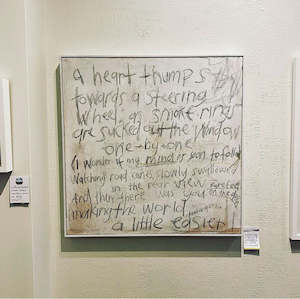 a heart thumps
towards a steering
wheel, as smoke rings
are sucked out the window
one-by-one
(I wonder if my mind is soon to follow)
Watching road cones, slowly swallowed
in the rear view
And then there was you
making the world
a little easier